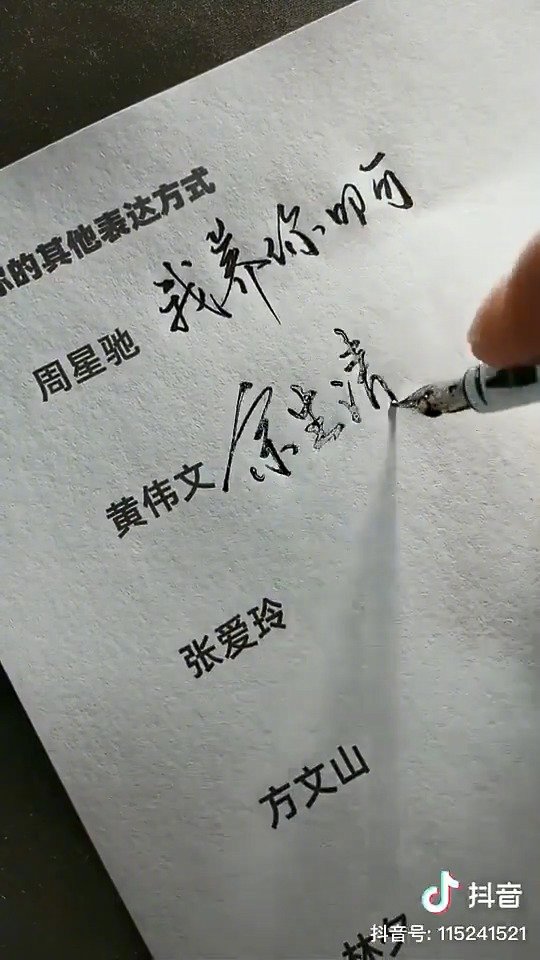 你的其他表达方式
周星驰 我养你啊
黄伟文 余生请
张爱玲
方文山
林夕
抖音
抖音号: 115241521